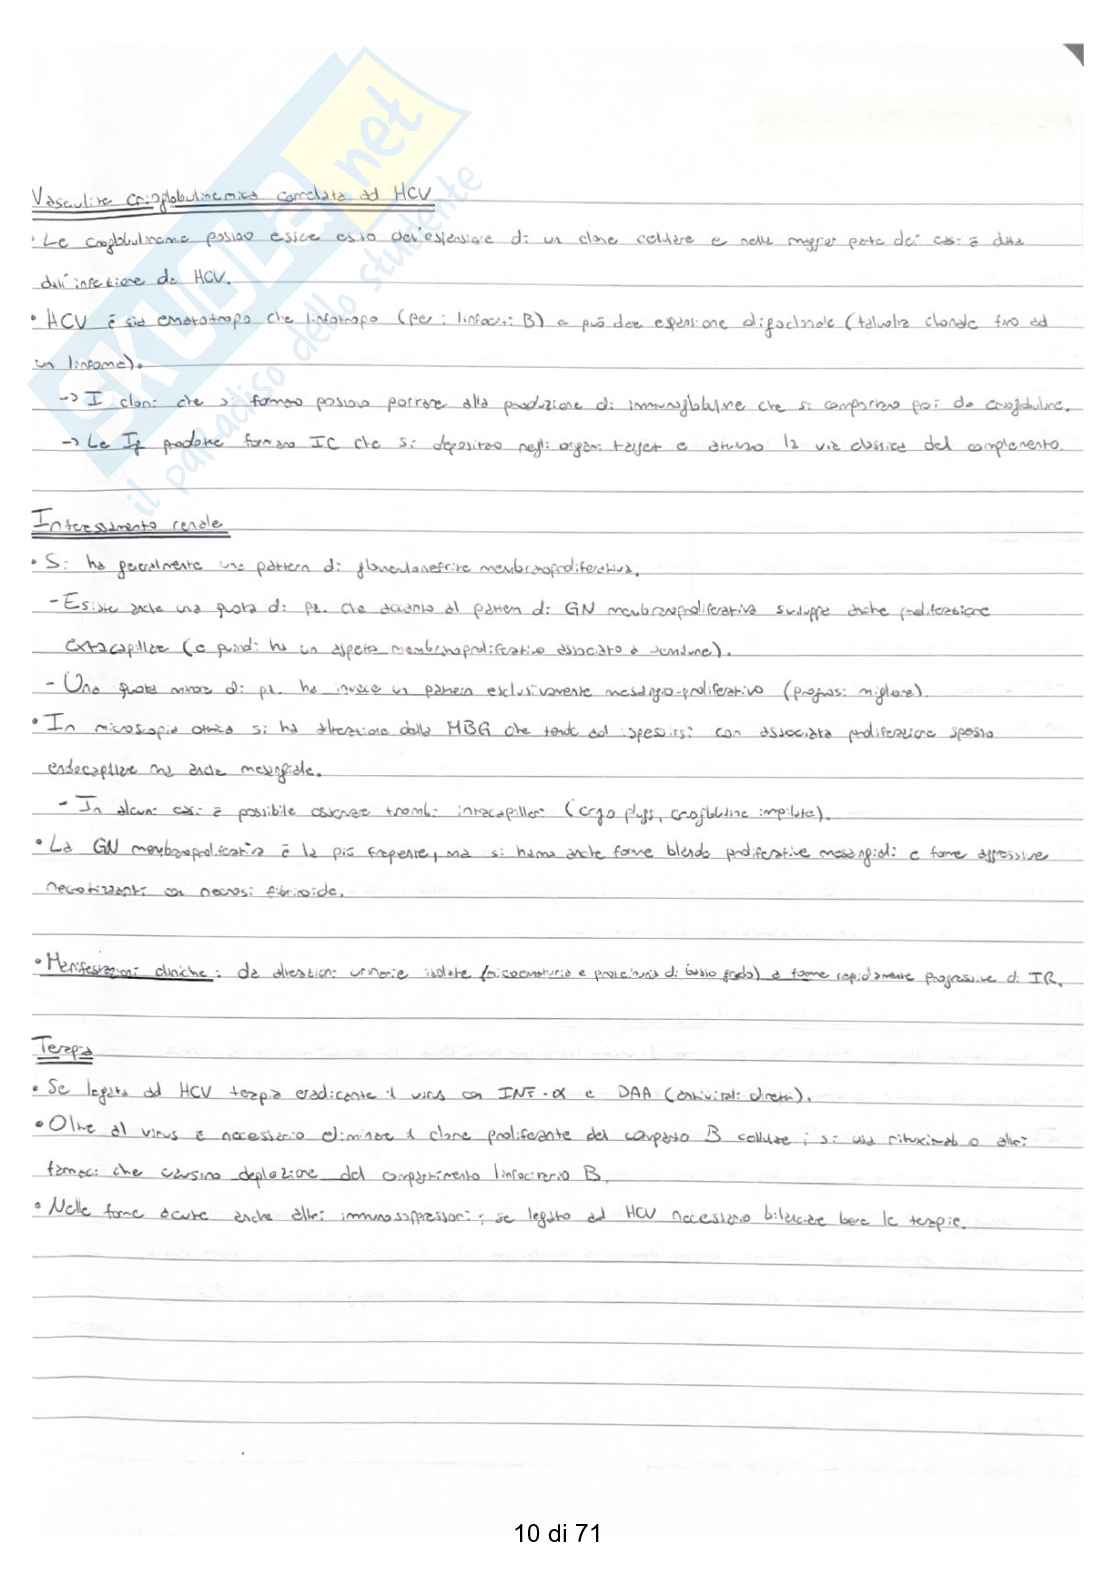 SKUOLA.net
il paradiso dello studente
Vasculite crioglobulinemica correlata ad HCV
• Le crioglobulinemie possono essere esito dell'espansione di un clone cellulare e nella maggior parte dei casi è data
dall'infezione da HCV.
• HCV è sia epatotropo che linfotropo (per i linfociti B) e può dare espansione oligoclonale (talvolta clonale fino ad
un linfoma).
-> I cloni che si formano possono portare alla produzione di immunoglobuline che si comportano poi da crioglobuline.
-> Le Ig prodotte formano IC che si depositano negli organi target e attivano la via classica del complemento.
Interessamento renale
• Si ha generalmente un pattern di glomerulonefrite membranoproliferativa.
- Esiste anche una quota di pz. che accanto al pattern di GN membranoproliferativa sviluppa anche proliferazione
extracapillare (e quindi ha un aspetto membranoproliferativo associato a semilune).
- Una quota minore di pz. ha invece un pattern esclusivamente mesangio-proliferativo (prognosi migliore).
• In microscopia ottica si ha alterazione della MBG che tende ad ispessirsi con associata proliferazione spesso
endocapillare ma anche mesangiale.
- In alcuni casi è possibile osservare trombi intracapillari (crio plugs, crioglobuline impilate).
• La GN membranoproliferativa è la più frequente, ma si hanno anche forme blande proliferative mesangiali e forme aggressive
necrotizzanti con necrosi fibrinoide.
• Manifestazioni cliniche: da alterazioni urinarie isolate (microematuria e proteinuria di basso grado) a forme rapidamente progressive di IR.
Terapia
• Se legata ad HCV terapia eradicante il virus con INF-α e DAA (antivirali diretti).
• Oltre al virus è necessario eliminare il clone proliferante del comparto B cellulare; si usa rituximab o altri
farmaci che causino deplezione del compartimento linfocitario B.
• Nelle forme acute anche altri immunosoppressori; se legato ad HCV necessario bilanciare bene le terapie.
10 di 71